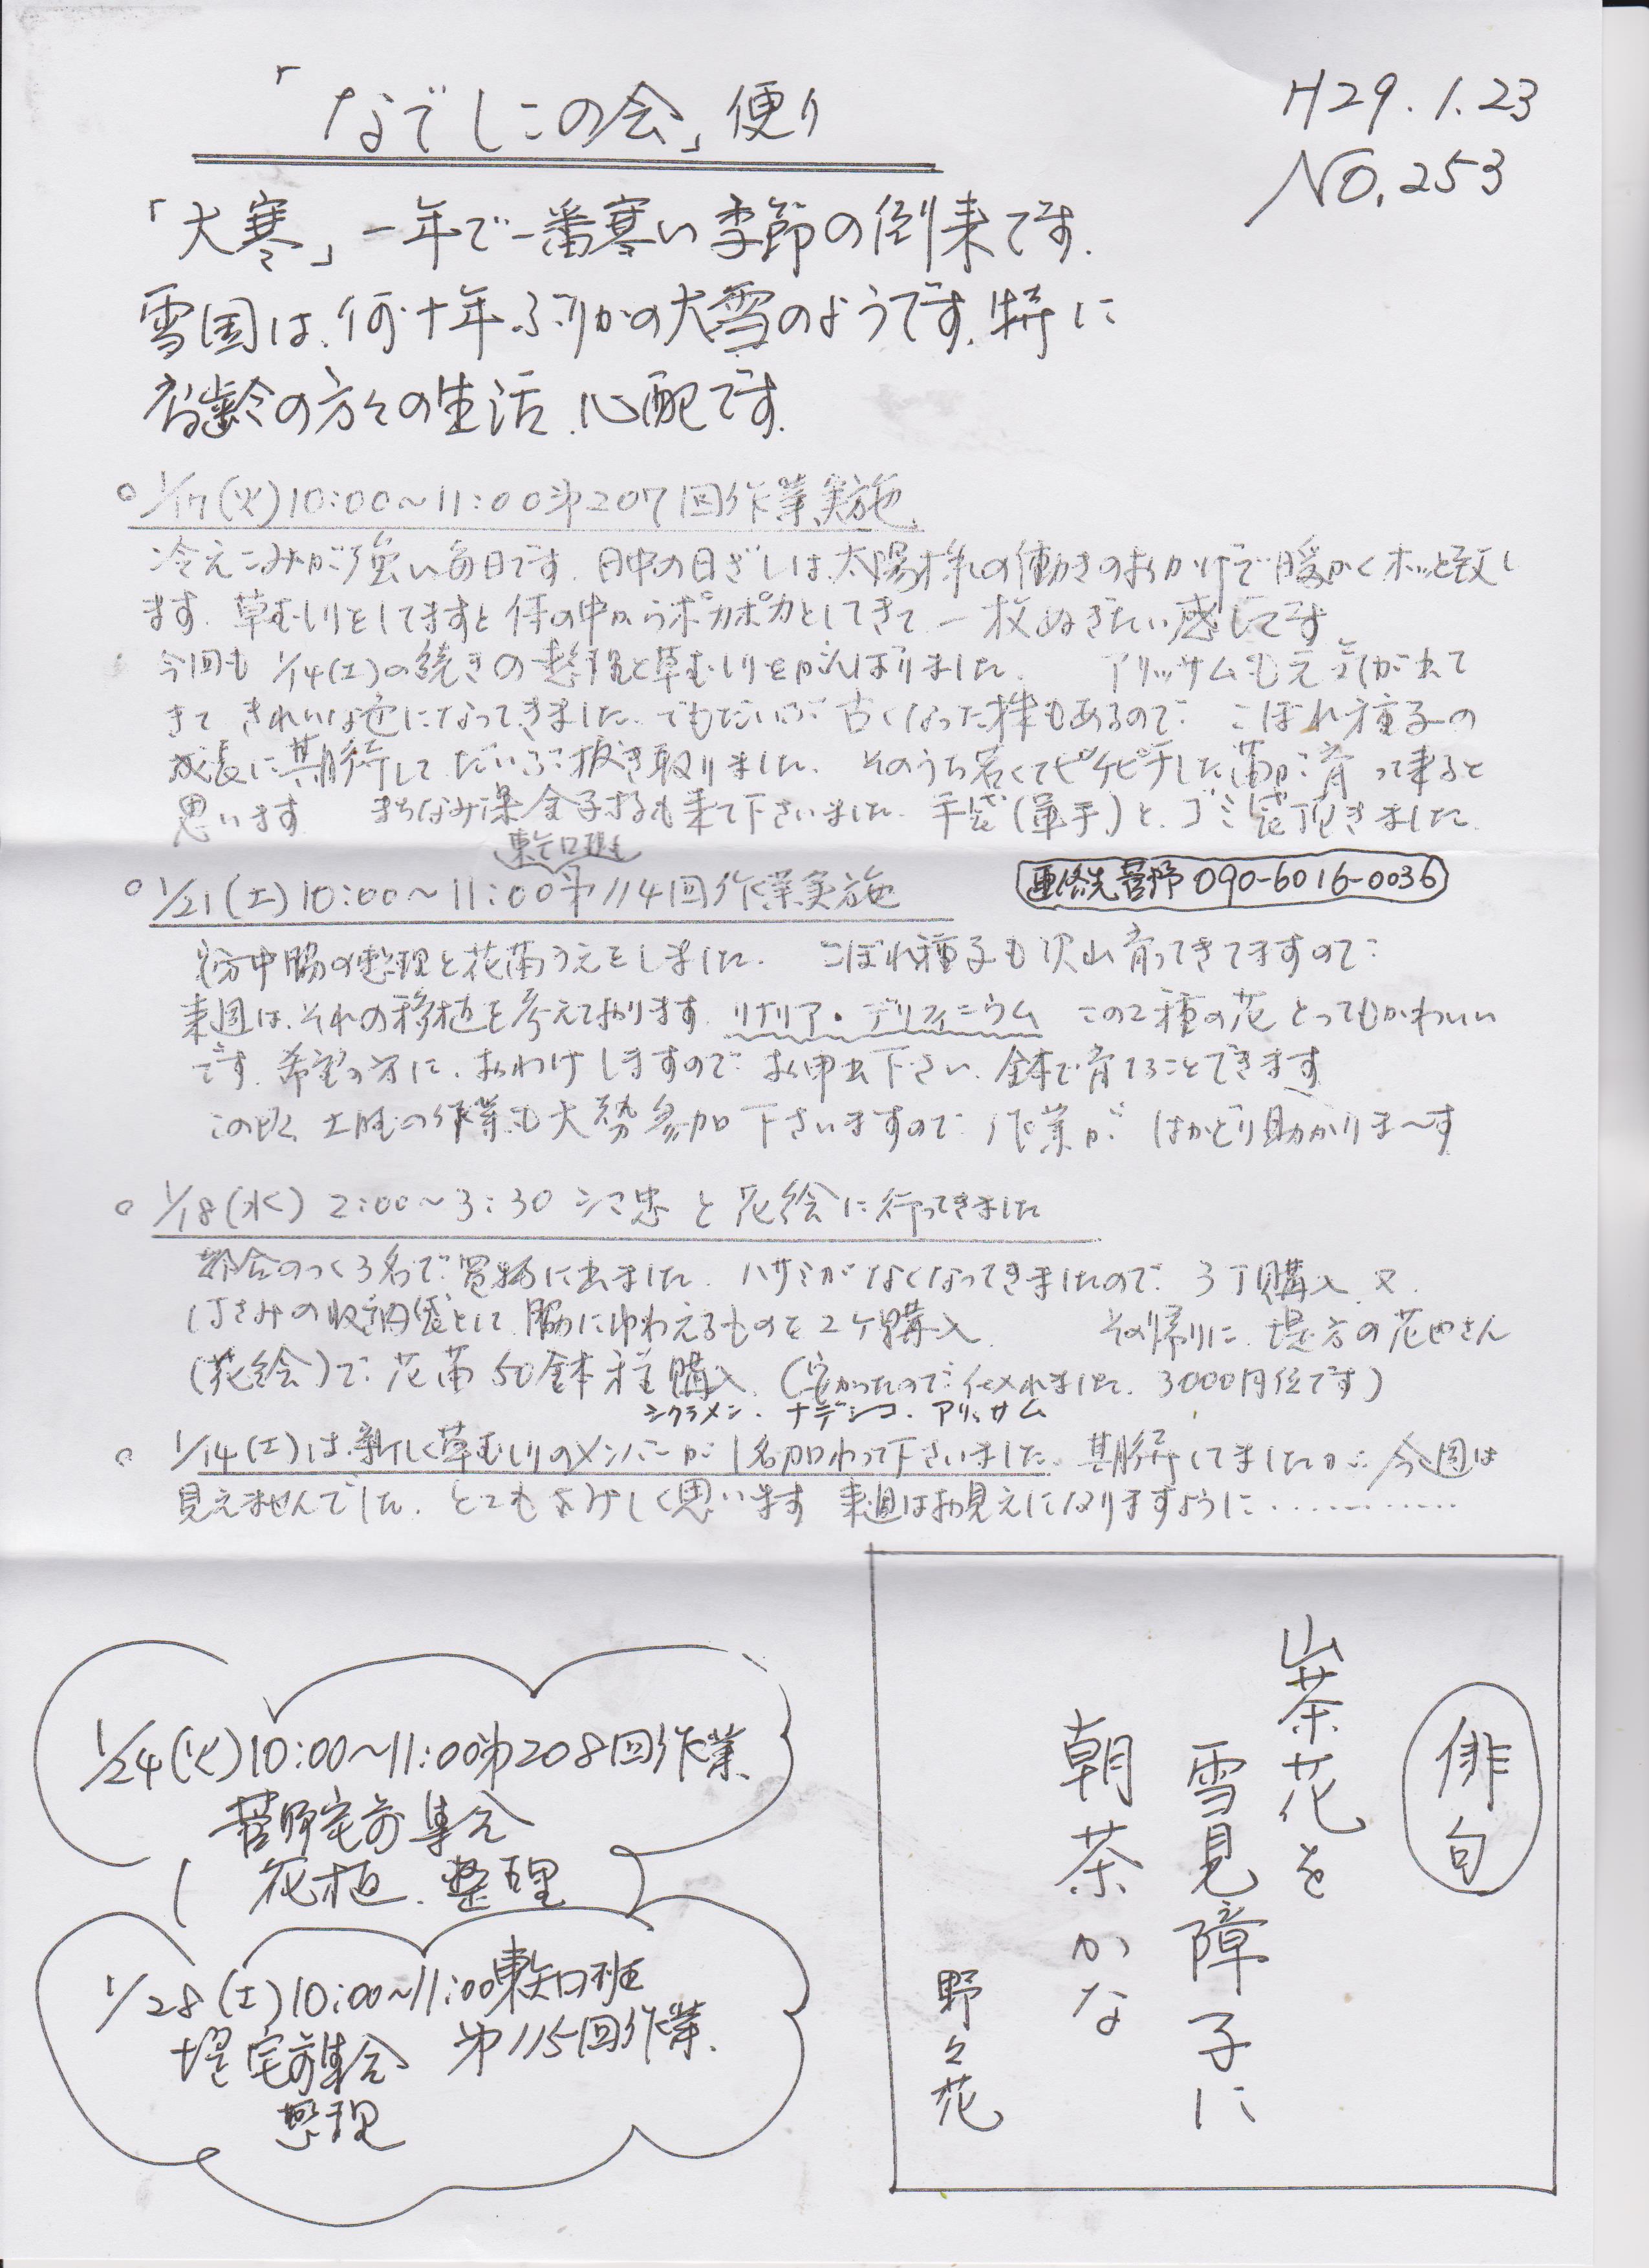 「なでしこの会」便り
H29.1.23
NO.253
「大寒」一年で一番寒い季節の到来です.
雪国は、何十年ぶりかの大雪のようです. 特に
高齢の方々の生活、心配です.
○ 1/17(火)10:00〜11:00第207回作業実施
冷えこみが強い毎日です. 日中の日ざしは、太陽様の働きのおかげで暖かくホッと致し
ます. 草むしりをしてますと体の中からポカポカとしてきて 一枚ぬぎたい感じです
今回も 1/14(土)の続きの整理と草むしりをがんばりました. アリッサムも元気が出て
きて きれいな色になってきました. でもだいぶ古くなった株もあるので こぼれ種子の
成長に期待して だいぶ抜き取りました. そのうち若くてピチピチした苗が育って来ると
思います まちなみ課 金子さんも来て下さいました. 手袋(軍手)と、ゴミ袋頂きました.
東矢口班
○ 1/21(土)10:00〜11:00第114回作業実施
連絡先菅野 090-6016-0036
中脇の整理と花苗うえをしました. こぼれ種子も沢山育ってきてますので
来週は、それの移植を考えております. リナリア・デルフィニウム この2種の花とってもかわいい
です. 希望の方に、おわけしますので お申出下さい. 鉢で育てることできます
この所、土曜の作業も大勢参加下さいますので 作業が はかどり助かりま〜す
○ 1/18(水) 2:00〜3:30 シマ忠 と 花絵に行ってきました
都合のつく3名で買物に出ました. ハサミがなくなってきましたので 3丁購入 又
はさみの収納袋として 脇にゆわえるものを2ケ購入 その帰りに 堤方の花屋さん
(花絵)で 花苗50鉢程購入 (安かったので仕入れました. 3000円位です)
シクラメン. ナデシコ. アリッサム
○ 1/14(土)は、新しく草むしりのメンバーが1名加わって下さいました. 期待してましたが 今週は
見えませんでした. とてもさみしく思います 来週はお見えになりますように…………
1/24(火)10:00〜11:00第208回作業
菅野宅前集合
花植、整理
1/28(土)10:00〜11:00東矢口班
第115回作業.
堤宅前集合
整理
俳句
山茶花を
雪見障子に
朝茶かな
野々花